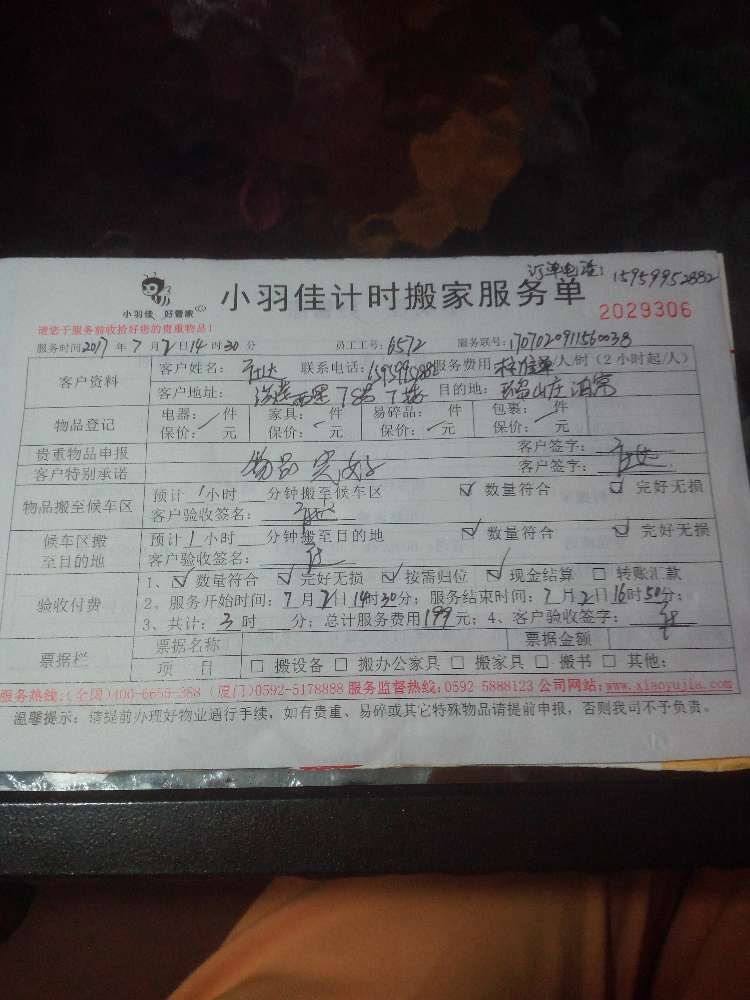 订单电话: 15959952882
小羽佳 好管家
小羽佳计时搬家服务单
2029306
请您于服务前收拾好您的贵重物品!
服务时间2017年7月2日14时30分 员工工号:6572 服务联号:1707020911560038
客户资料 客户姓名: 联系电话:15959952882 服务费用 /人/时(2小时起/人)
客户地址: 目的地:
物品登记 电器: 件 家具: 件 易碎品: 件 包裹: 件
保价: 元 保价: 元 保价: 元 保价: 元
贵重物品申报 客户签字:
客户特别承诺 物品完好 客户签字:
物品搬至候车区 预计1小时 分钟搬至候车区 ☑数量符合 ☑完好无损
客户验收签名:
候车区搬至目的地 预计1小时 分钟搬至目的地 ☑数量符合 ☑完好无损
客户验收签名:
验收付费 1、☑数量符合 ☑完好无损 ☑按需归位 ☑现金结算 □转账汇款
2、服务开始时间:7月2日14时30分;服务结束时间:7月2日16时50分;
3、共计:3时 分;总计服务费用199元;4、客户验收签字:
票据栏 票据名称 票据金额
项 目 □搬设备 □搬办公家具 □搬家具 □搬书 □其他:
服务热线:(全国)400-6655-388 (厦门)0592-5178888 服务监督热线:0592 5888123 公司网站:www.xiaoyujia.com
温馨提示:请提前办理好物业通行手续,如有贵重、易碎或其它特殊物品请提前申报,否则我司不予负责。